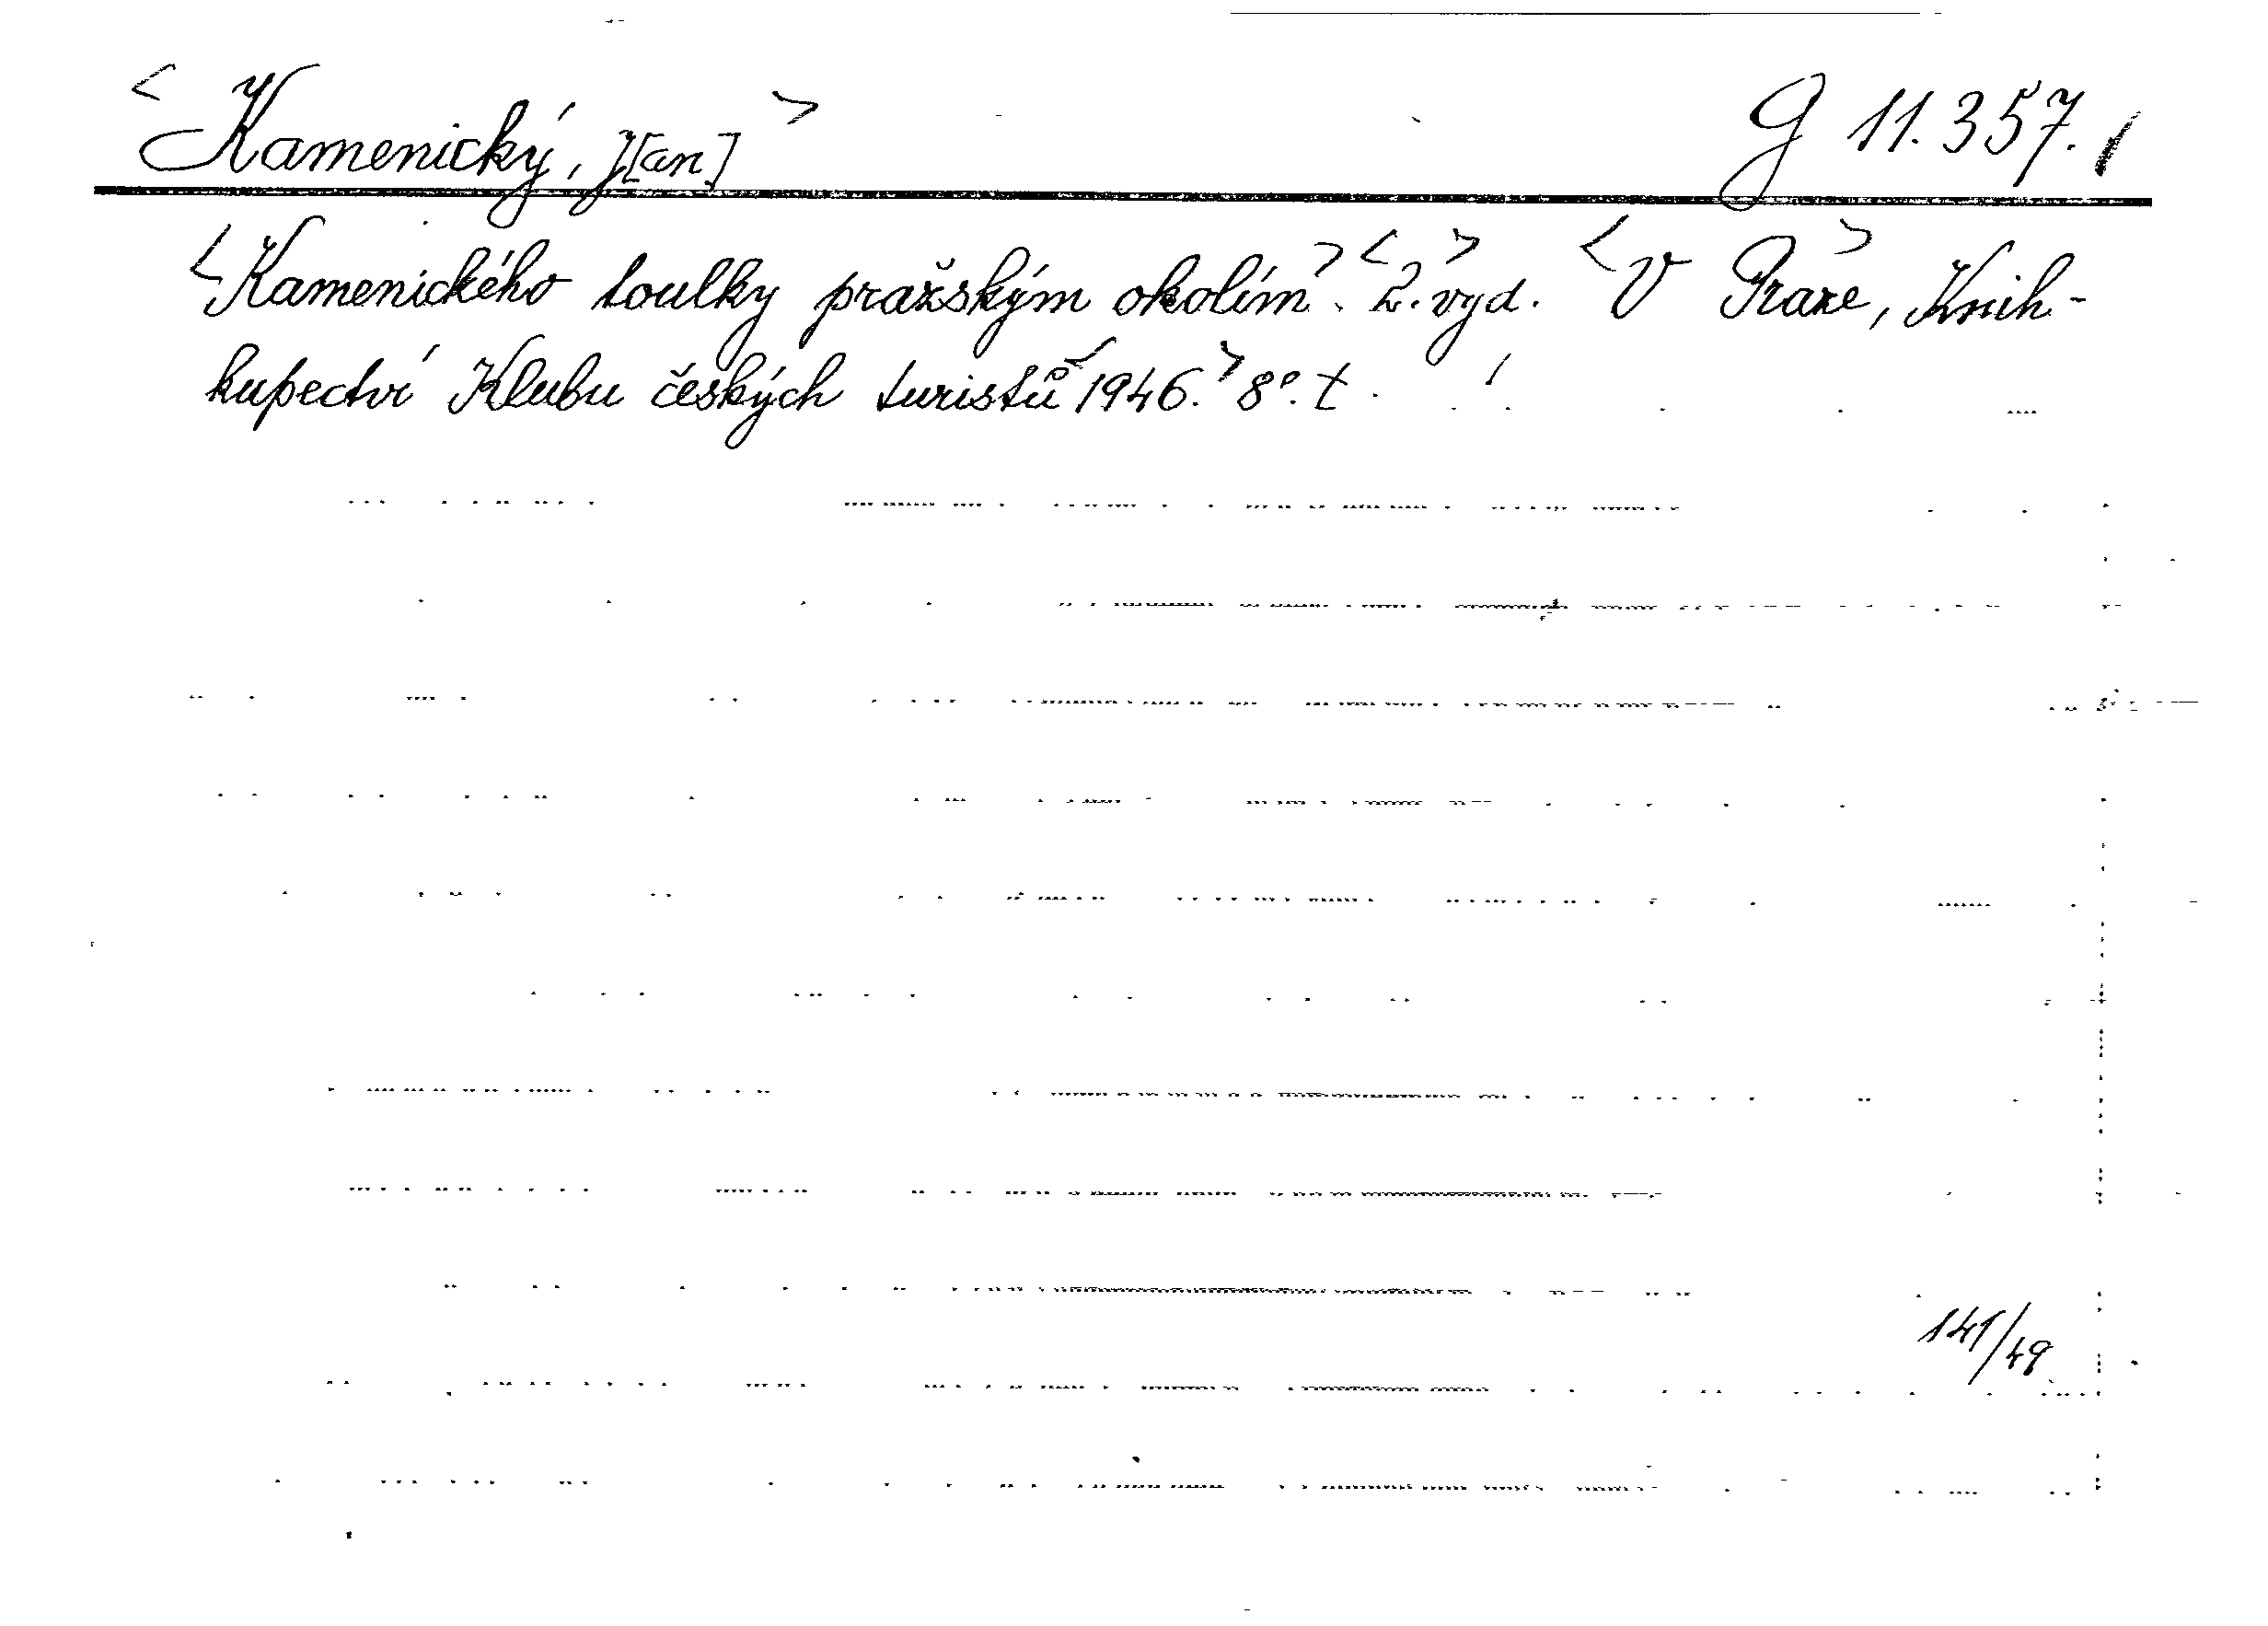 <Kamenický, J[an]> G 11.357.
<Kamenického toulky pražským okolím>. <2.> vyd. <V Praze>, Knih-
kupectví Klubu českých turistů <1946.> 8°. t.
141/49